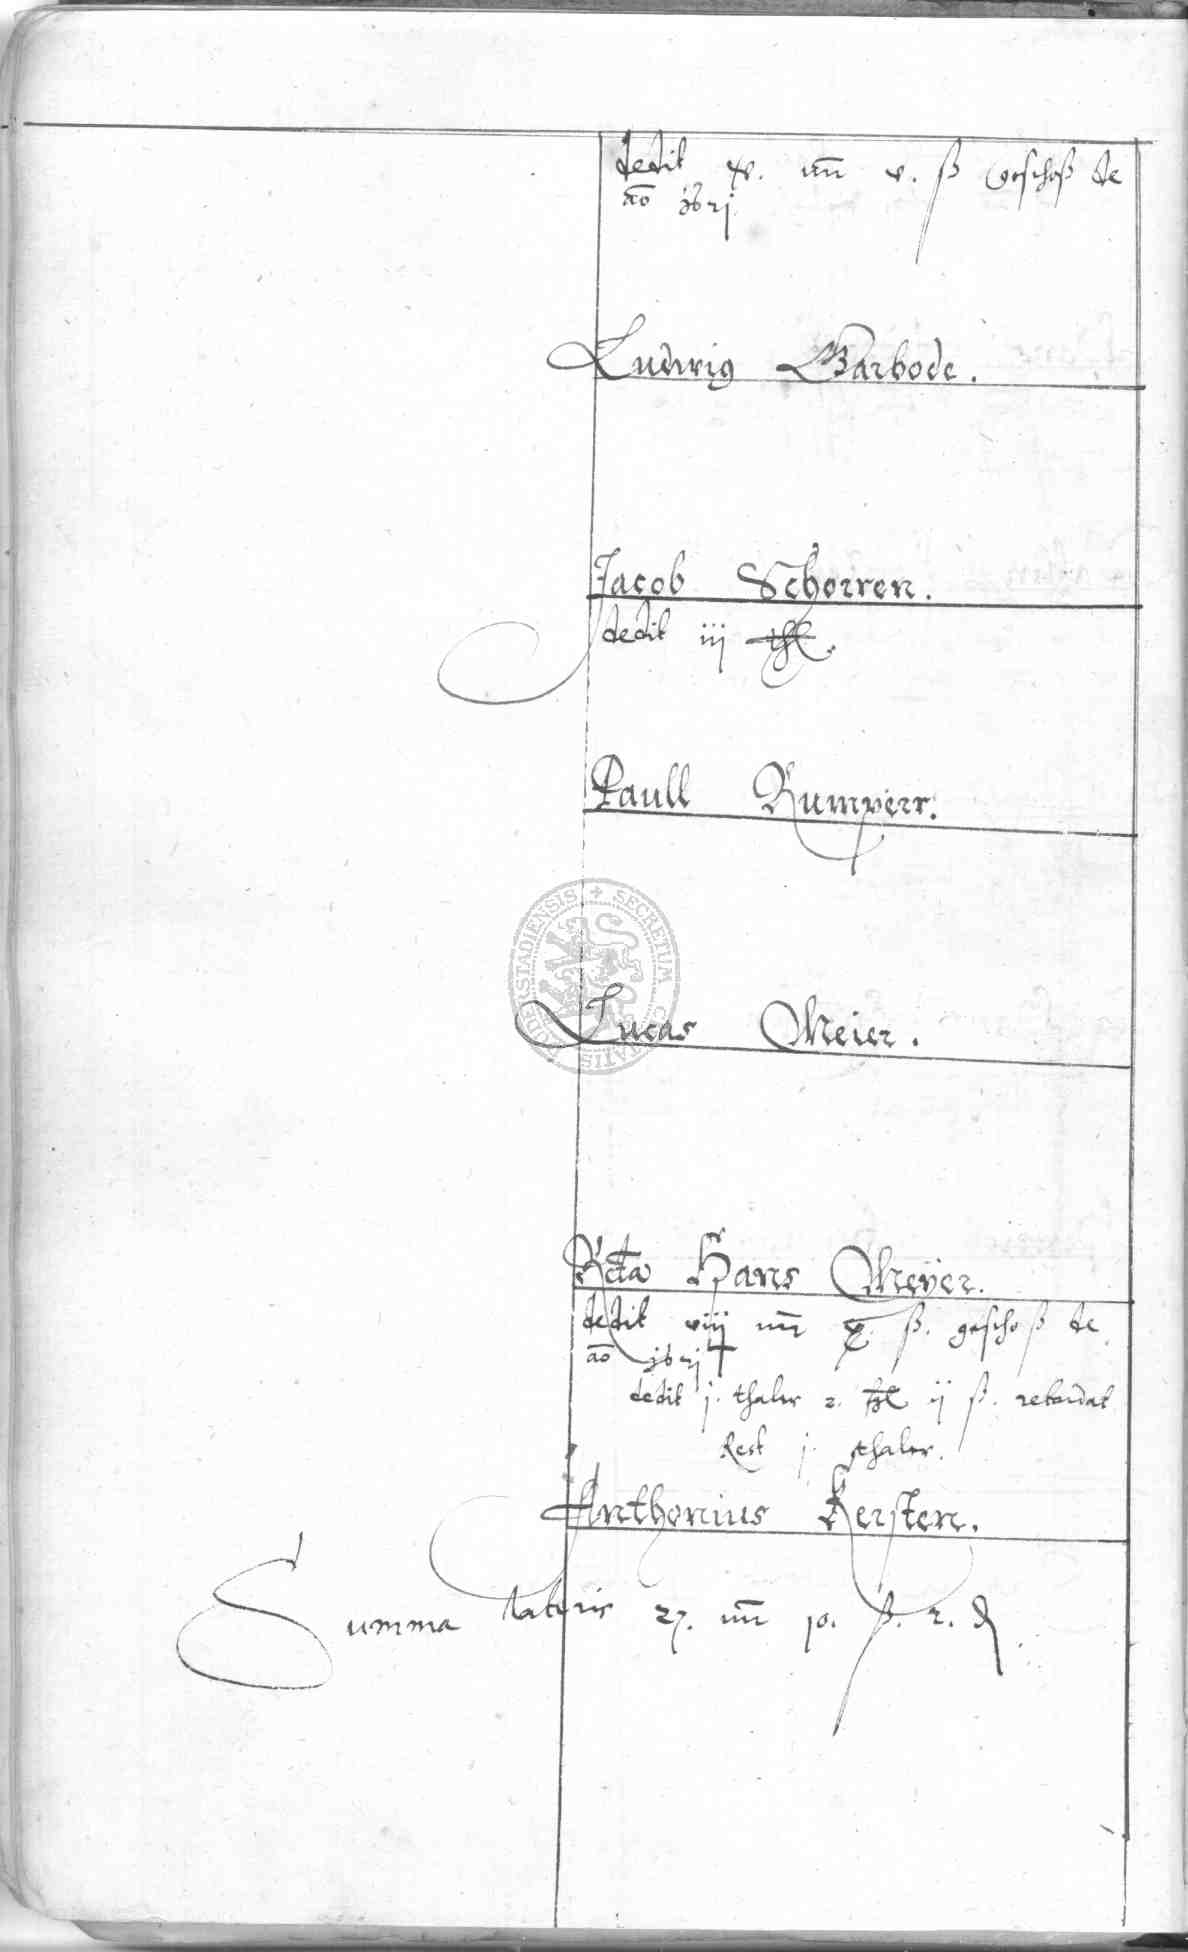 dedit xv. mr v. ß Geschoß de
ao 1621
Ludwig Barbode.
Jacob Schorren.
dedit iij thl.
Paull Rumpierr.
SECRETUM CIVITATIS DUDERSTADIENSIS
Lucas Meier.
Rcta Hans Meyer.
dedit viij mr x. ß. geschoß de
ao 1621
dedit j. thaler 2. thl ij ß. retardat
Rest j. thaler.
Anthonius Kersten.
Summa lateris 27. mr 10. ß. 2. ₰